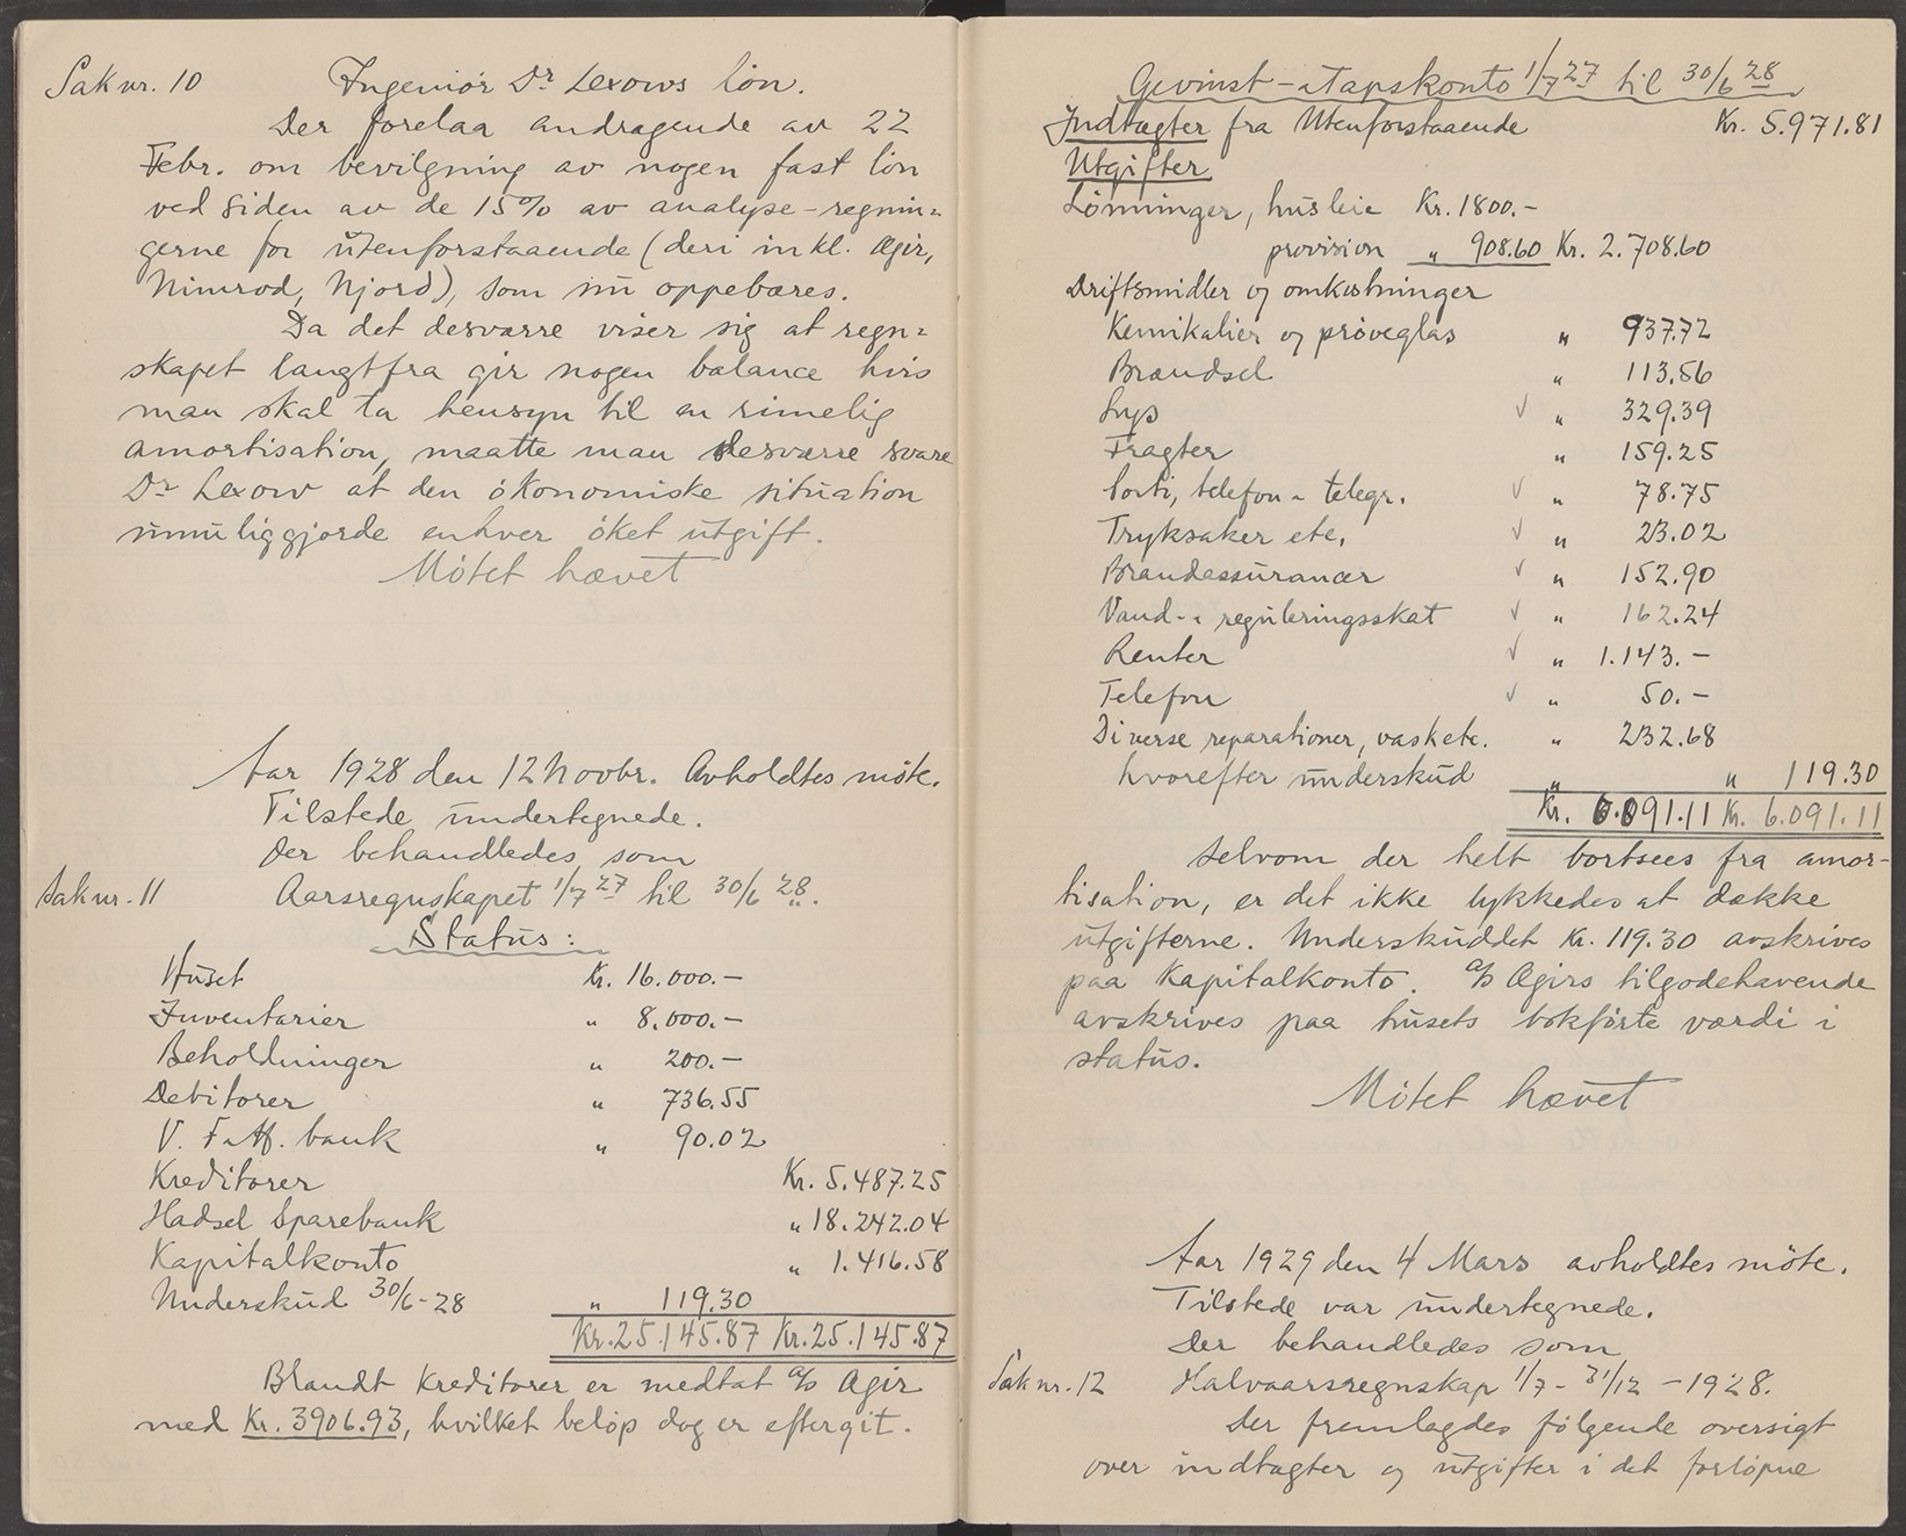 Sak nr. 10 Ingeniör Dr Lexows lön.
Der forelaa andragende av 22
Febr. om bevilgning av nogen fast lön
ved siden av de 15% av analyse-regnin=
gerne for utenforstaaende (deri inkl. Ægir,
Nimrod, Njord), som nu oppebæres.
Da det desværre viser sig at regn=
skapet langtfra gir nogen balance hvis
man skal ta hensyn til en rimelig
amortisation, maatte man desværre svare
Dr Lexow at den ökonomiske situation
umuliggjorde enhver öket utgift.
Mötet hævet
Aar 1928 den 12 Novbr. Avholdtes möte.
Tilstede undertegnede.
Der behandledes som
Sak nr. 11 Aarsregnskapet 1/7 27 til 30/6 28.
Status:
Huset Kr. 16.000.-
Inventarier " 8.000.-
Beholdninger " 200.-
Debitorer " 736.55
V. F. & Hf. bank " 90.02
Kreditorer Kr. 5.487.25
Hadsel Sparebank " 18.242.04
Kapitalkonto " 1.416.58
Underskud 30/6-28 " 119.30
Kr. 25.145.87 Kr. 25.145.87
Blandt Kreditorer er medtat a/s Ægir
med Kr. 3906.93, hvilket belöp dog er eftergit.
Gevinst- & Tapskonto 1/7 27 til 30/6 28
Indtægter fra Utenforstaaende Kr. 5.971.81
Utgifter
Lönninger, husleie Kr. 1800.-
provision " 908.60 Kr. 2.708.60
Driftsmidler og omkostninger
Kemikalier og pröveglas " 937.72
Brændsel " 113.56
Lys √ " 329.39
Fragter " 159.25
Porti, telefon & telegr. √ " 78.75
Tryksaker etc. √ " 23.02
Brandassurancer √ " 152.90
Vand- & reguleringsskat √ " 162.24
Renter √ " 1.143.-
Telefon √ " 50.-
Diverse reparationer, vask etc. " 232.68
hvorefter underskud " " 119.30
Kr. 6.091.11 Kr. 6.091.11
Selvom der helt bortsees fra amor-
tisation, er det ikke lykkedes at dække
utgifterne. Underskuddet Kr. 119.30 avskrives
paa Kapitalkonto. a/s Ægirs tilgodehavende
avskrives paa husets bokförte værdi i
status.
Mötet hævet
Aar 1929 den 4 Mars avholdtes möte.
Tilstede var undertegnede.
Der behandledes som
Sak nr. 12 Halvaarsregnskap 1/7 - 31/12 - 1928.
Der fremlagdes fölgende oversigt
over indtægter og utgifter i det forlöpne